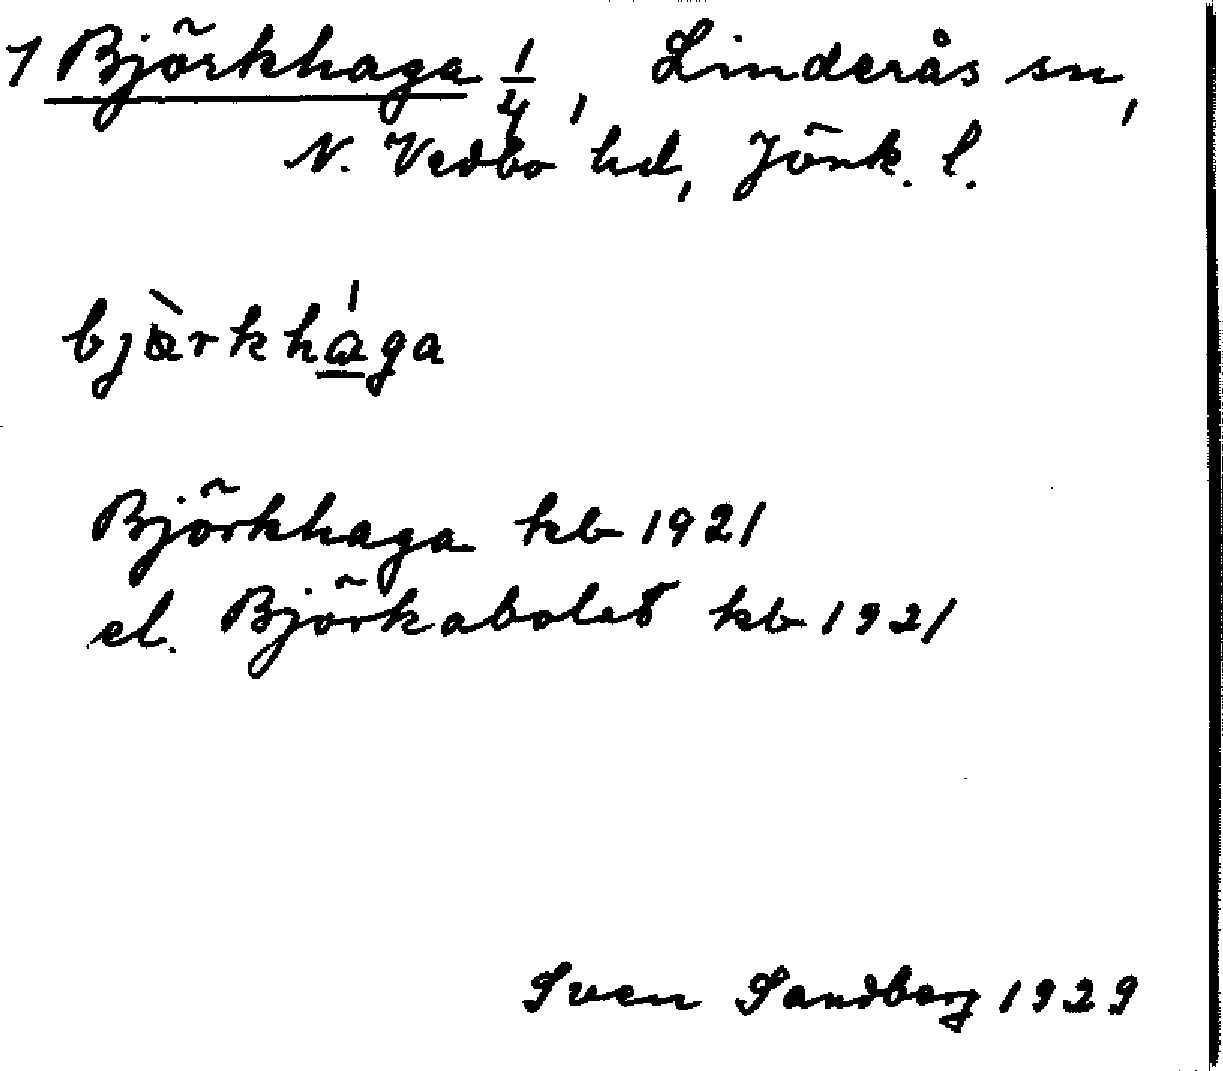 1 Björkhaga 1/4, Linderås sn,
N. Vedbo hd, Jönk. l.
bjàrkhága
Björkhaga kb 1921
el. Björkabolet kb 1921
Sven Sandberg 1929